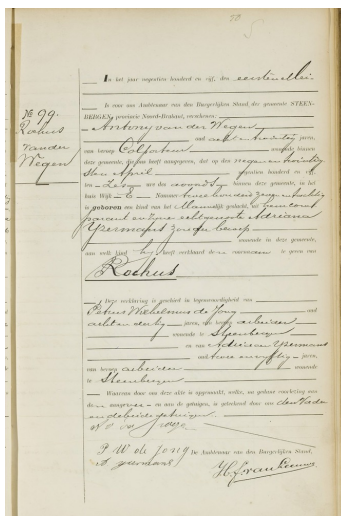 № 99.
Rochus
van der
Wegen
In het jaar negentien honderd en elf, den eersten Mei
is voor ons Ambtenaar van den Burgerlijken Stand, der gemeente STEEN-
BERGEN, provincie Noord-Brabant, verschenen:
Antony van der Wegen
oud jaren,
van beroep Colporteur wonende binnen
deze gemeente, die ons heeft aangegeven, dat op den negen en twintig
sten April negentien honderd en elf
ten zeven ure des avonds, binnen deze gemeente, in het
huis Wijk E Nummer twee honderd
is geboren een kind van het Mannelijk geslacht, uit van comparant en zijne echtgenoote Adriana
Ypermans zonder beroep
wonende in deze gemeente,
aan welk kind hij heeft verklaard den voornaam te geven van
Rochus
Deze verklaring is geschied in tegenwoordigheid van
Petrus Wilhelmus de Jong
oud acht en dertig jaren, van beroep arbeider
wonende te Steenbergen
en van Adriaan Ypermans
oud twee en vijftig jaren,
van beroep arbeider wonende
te Steenbergen
Waarvan door ons deze akte is opgemaakt, welke, na gedane voorlezing aan
de aangever en aan de getuigen, is geteekend door ons den Vader
en de beide getuigen.
P W de Jong
A Ypermans
De Ambtenaar van den Burgerlijken Stand,